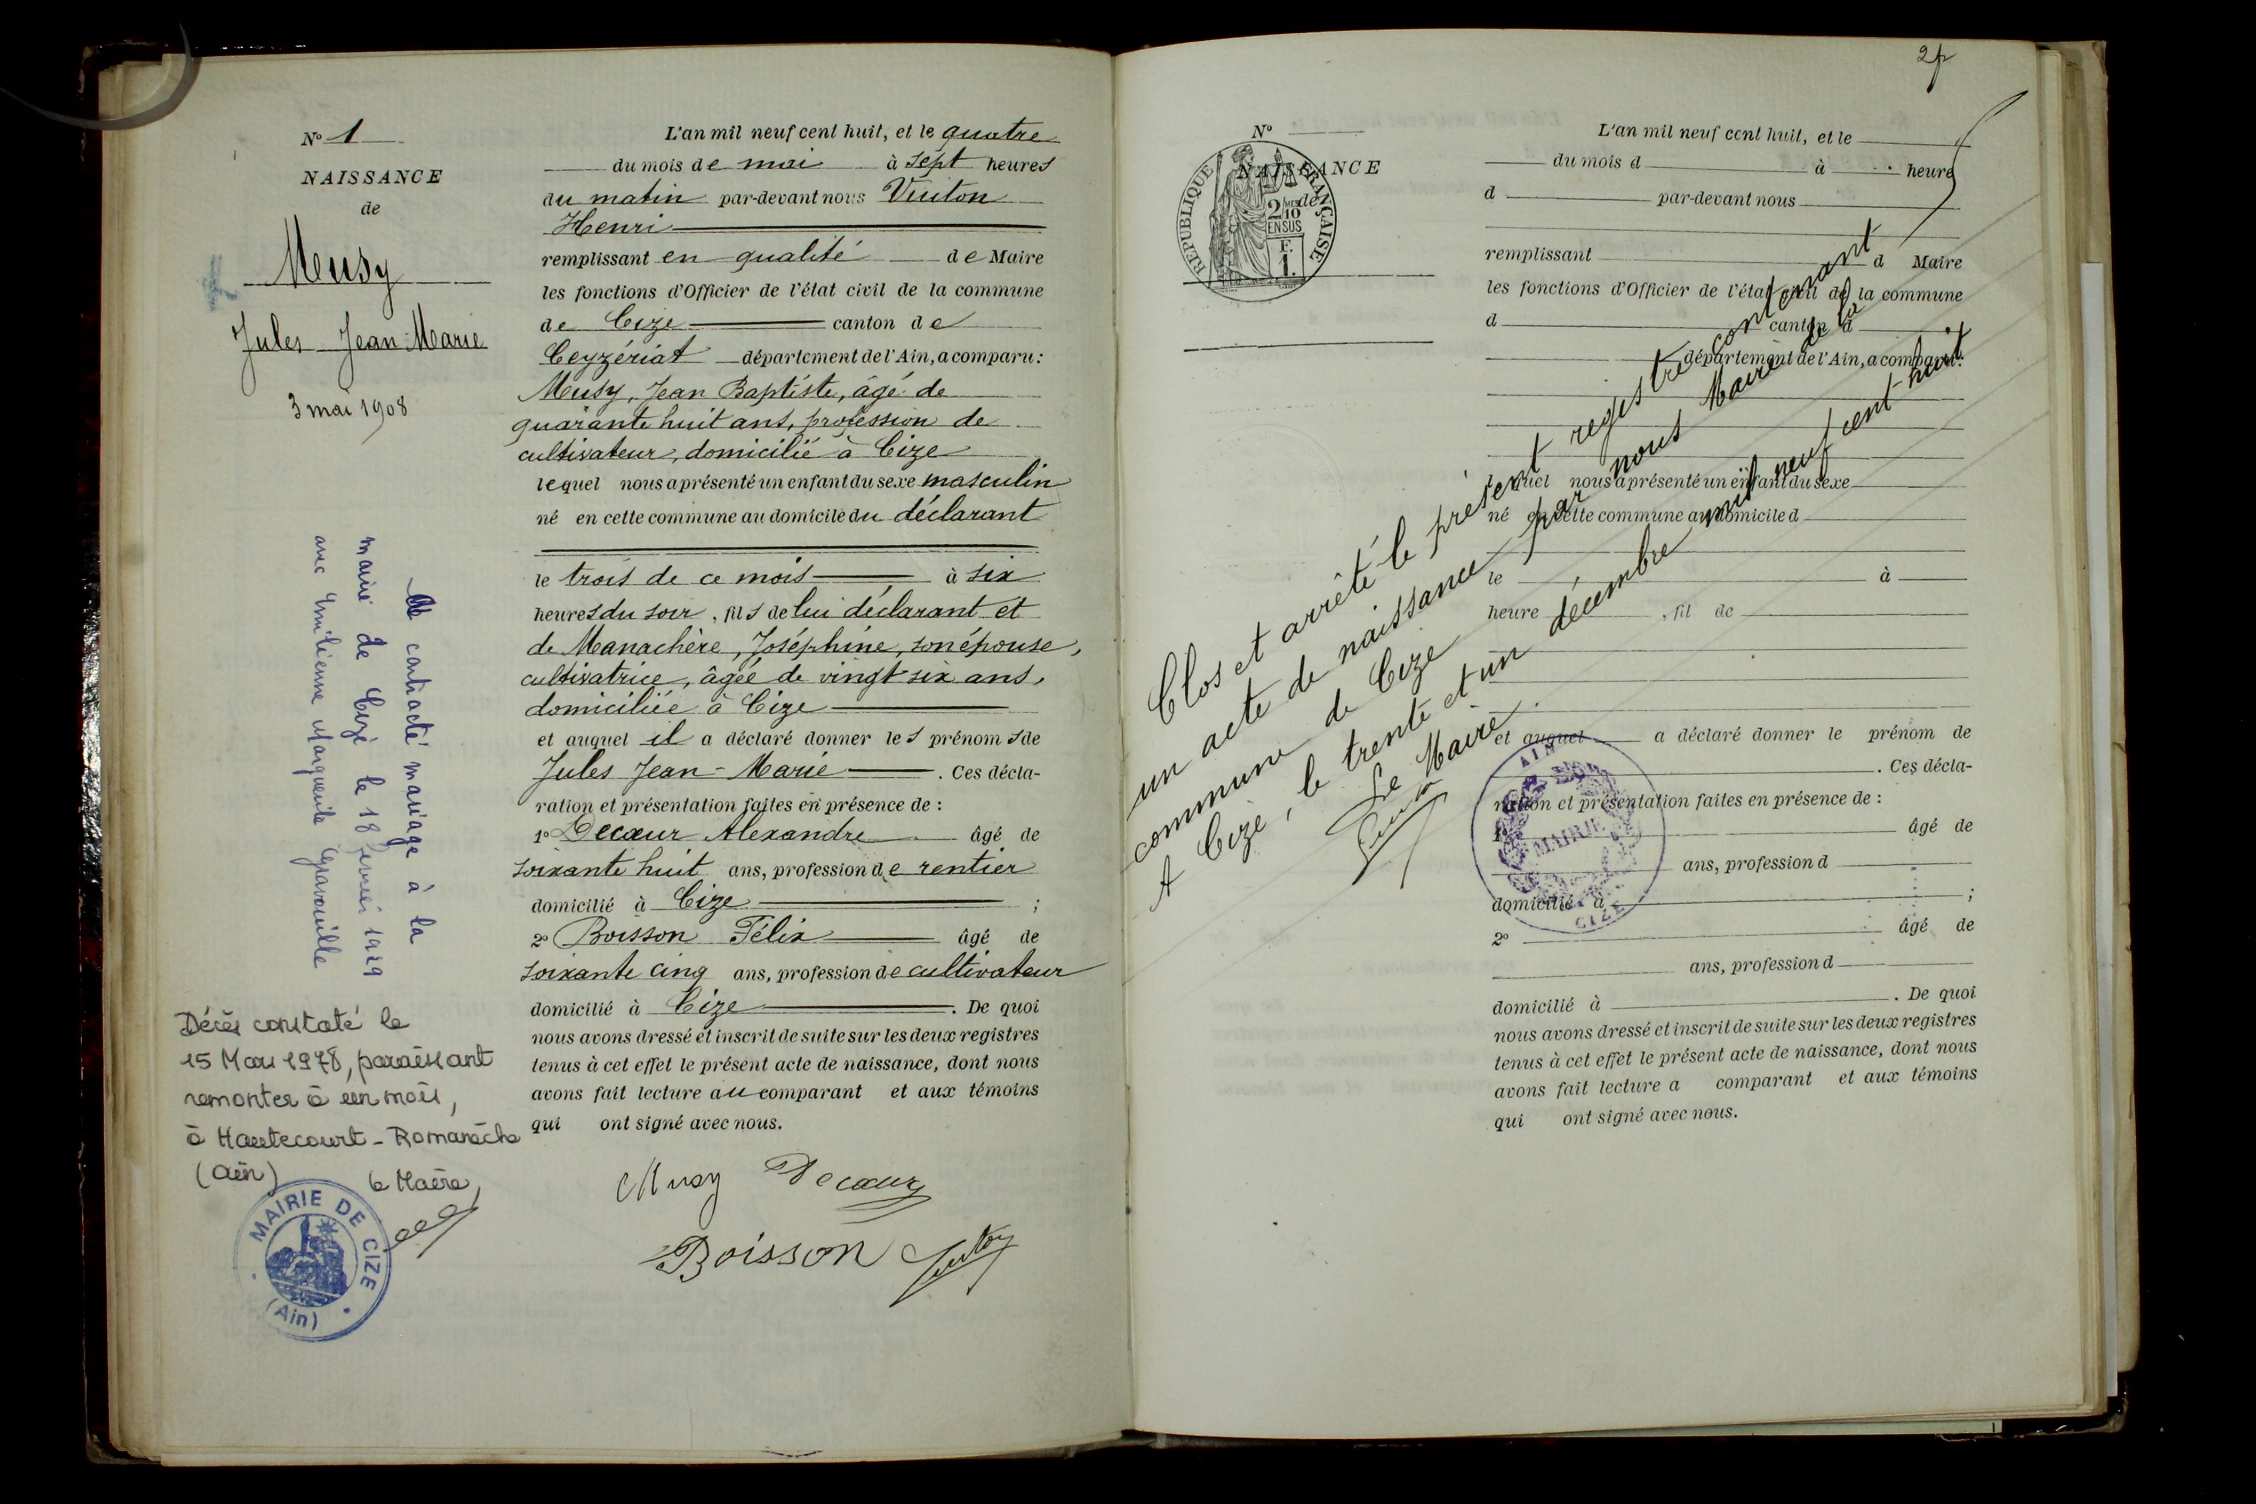 N° 1
NAISSANCE
de
Meusy
Jules Jean-Marie
3 mai 1908
A contracté mariage à la
mairie de Cize le 18 février 1929
avec Emilienne Marguerite
Décès constaté le
15 Mars 1978, paraissant
remonter à un mois,
à Hautecourt-Romanèche
(Ain)
le Maire,
MAIRIE DE CIZE
(Ain)
L'an mil neuf cent huit, et le quatre
du mois de mai à sept heures
du matin par-devant nous
Henri
remplissant en qualité de Maire
les fonctions d'Officier de l'état civil de la commune
de Cize canton de
Ceyzériat département de l'Ain, a comparu:
Meusy, Jean Baptiste, âgé de
quarante huit ans, profession de
cultivateur, domicilié à Cize
lequel nous a présenté un enfant du sexe masculin
né en cette commune au domicile du déclarant
le trois de ce mois à six
heures du soir, fils de lui déclarant et
de Manachère, Joséphine, son épouse,
cultivatrice, âgée de vingt six ans,
domiciliée à Cize
et auquel il a déclaré donner les prénoms de
Jules Jean-Marie. Ces décla-
ration et présentation faites en présence de :
1° Decœur Alexandre âgé de
soixante huit ans, profession de rentier
domicilié à Cize ;
2° Boisson Félix âgé de
soixante cinq ans, profession de cultivateur
domicilié à Cize. De quoi
nous avons dressé et inscrit de suite sur les deux registres
tenus à cet effet le présent acte de naissance, dont nous
avons fait lecture au comparant et aux témoins
qui ont signé avec nous.
Musy Decœur
Boisson
2
N°
NAISSANCE
de
RÉPUBLIQUE FRANÇAISE
2/10
EN SUS
F.
1.
L'an mil neuf cent huit, et le
du mois d à heure
d par-devant nous
remplissant d Maire
les fonctions d'Officier de l'état civil de la commune
d canton d
département de l'Ain, a comparu:
lequel nous a présenté un enfant du sexe
né en cette commune au domicile d
le à
heure , fil de
et auquel a déclaré donner le prénom de
. Ces décla-
ration et présentation faites en présence de :
1° âgé de
ans, profession d
domicilié à ;
2° âgé de
ans, profession d
domicilié à . De quoi
nous avons dressé et inscrit de suite sur les deux registres
tenus à cet effet le présent acte de naissance, dont nous
avons fait lecture a comparant et aux témoins
qui ont signé avec nous.
Clos et arrêté le présent registre contenant
un acte de naissance par nous Maire de la
commune de Cize
A Cize, le trente et un décembre mil neuf cent huit
Le Maire
AIN
MAIRIE
CIZE